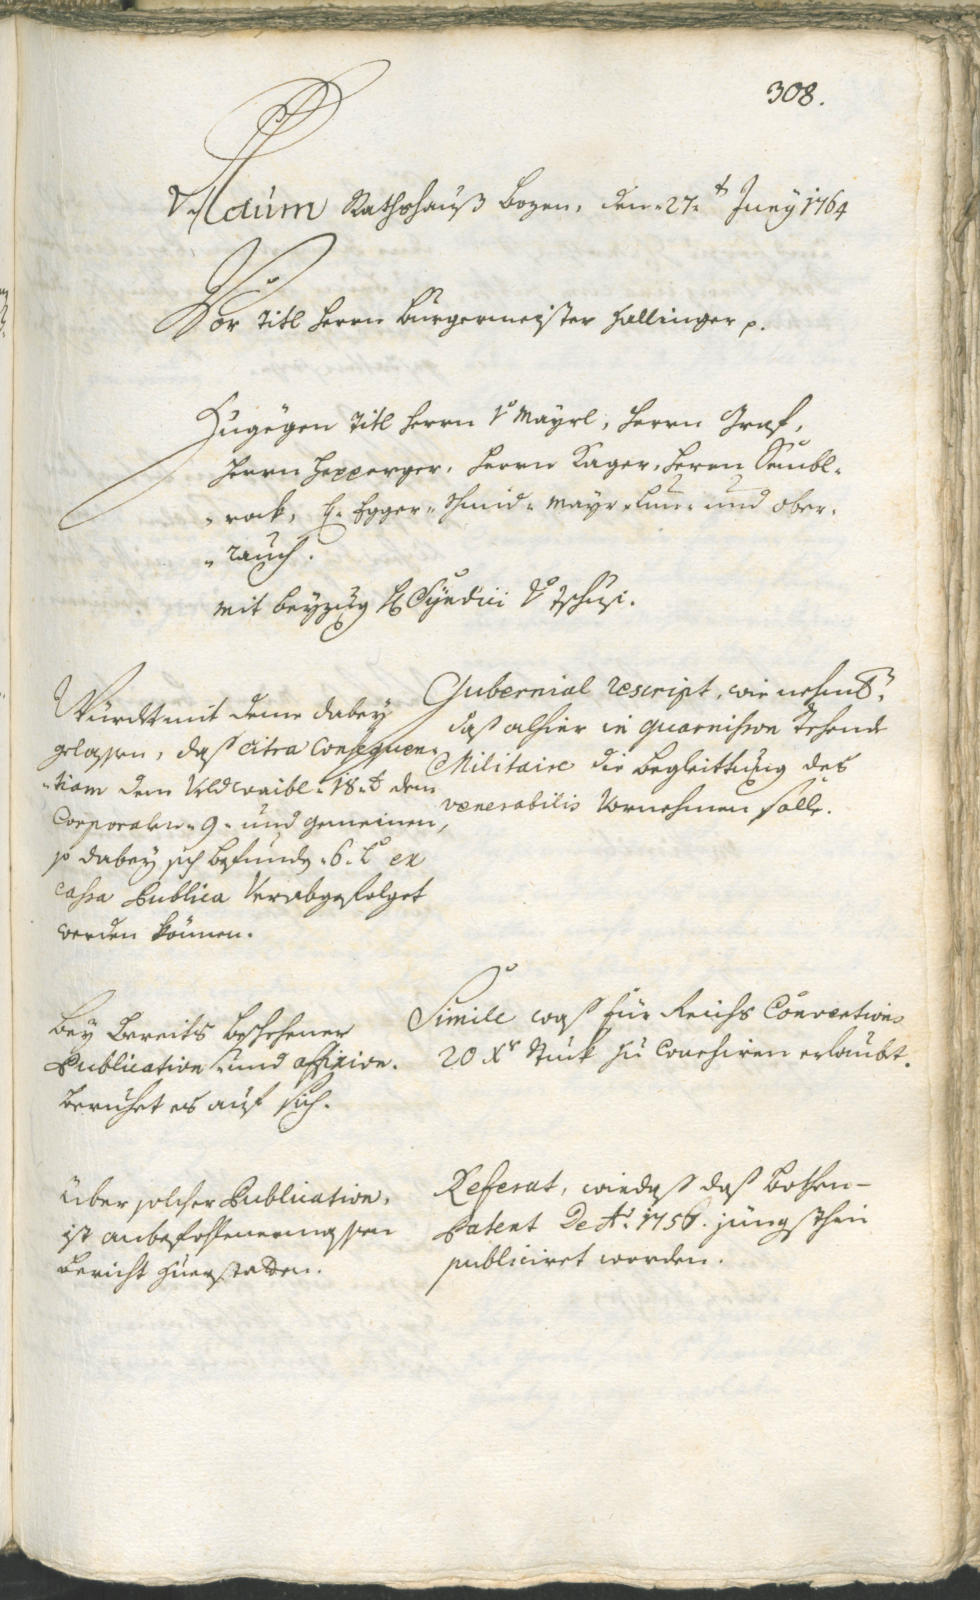 308.
Actum Rathshauß Bozen, den 27.t Juny 1764
Vor Titl Herrn Burgermeister Hallinger p.
Zugegen Titl Herrn Dr Mayrl, Herrn Graf,
Herrn Hepperger, Herrn Kager, Herrn Seubl-
rock, H. Egger- Schmid- Mayr und Ober-
rauch.
mit beyzug H Syndici Dr Tschusi.
Gubernial rescript, wie nehmb:
daß alhier in quarnison stehende
Militaire die begleittung des
venerabilis vornehmen solle.
Würdt mit deme dabey
gelassen, daß citra consequen-
tiam dem Veldwaibl 18 dem
Corporalen 9 und gemeinen,
so dabey sich befunden 6 ex
cassa Publica verabgefolget
werden können.
Simile waß für Reichs Conventions
20 Xr Stuk zu Coursiren erlaubt.
Bey bereits beschehener
Publication und affixion
beruhet es auf sich.
Referat, wie daß das Bothen-
Patent De Ao. 1756. jüngsthin
publiciret worden.
Über solcher Publication,
ist anbefohlenermassen
bericht zuerstatten.